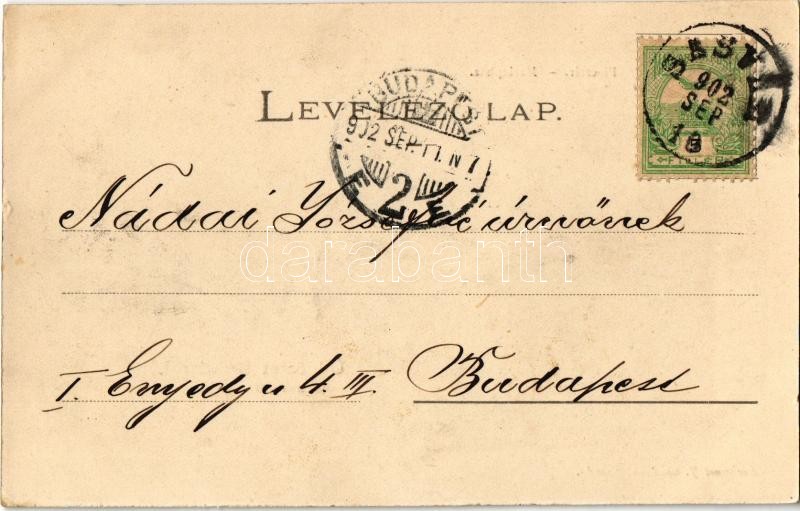 SASVÁR
902
SEP
10
FILLER
BUDAPEST
902 SEP. 11. N 7
2
LEVELEZŐ-LAP.
Nádai Józsefné úrnőnek
darabanth
I. Enyedy u 4. III. Budapest